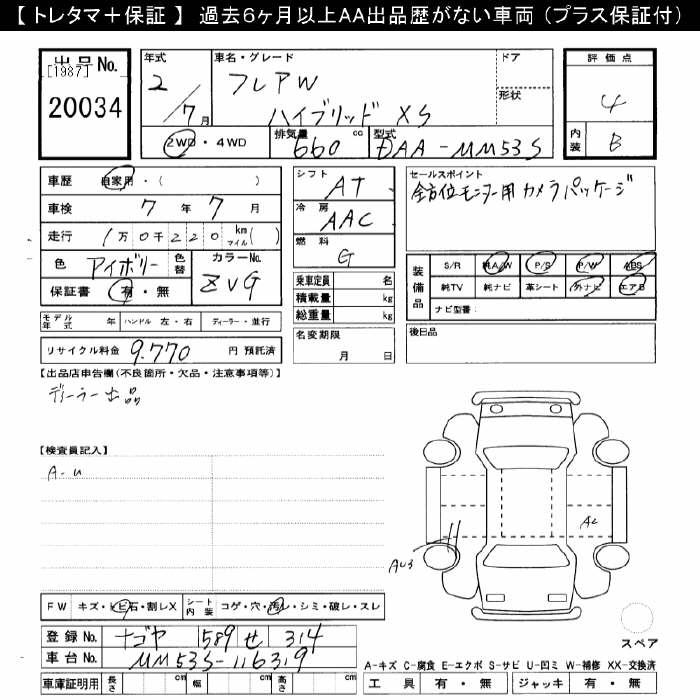 【 トレタマ＋保証 】 過去6ヶ月以上AA出品歴がない車両（プラス保証付）
出品 No.
[1987]
20034
年式
2 / 7 月
車名・グレード
フレアW
ハイブリッド XS
ドア
形状
2WD・4WD
排気量
660 cc
型式
DAA-MM53S
評価点
4
内装
B
車歴 自家用・( )
車検 7 年 7 月
走行 1万0千220 km マイル( )
色 アイボリー 色替
カラーNo.
ZVG
保証書 有・無
モデル年式 年 ハンドル 左・右 ディーラー・並行
リサイクル料金 9.770 円 預託済
シフト
AT
冷房
AAC
燃料
G
乗車定員 名
積載量 kg
総重量 kg
名変期限
月 日
セールスポイント
全方位モニター用カメラパッケージ
装備品
S/R 純A/W P/S P/W ABS
純TV 純ナビ 革シート 外ナビ エアB
ナビ型番：
後日品
【出品店申告欄(不良箇所・欠品・注意事項等)】
ディーラー出品
【検査員記入】
A-U
AU3
FW キズ・トビ石・割レX シート内装 コゲ・穴・汚レ・シミ・破レ・スレ
登録 No. ナゴヤ 589 せ 314
車台 No. MM53S-116319
車庫証明用 長さ cm 幅 cm 高さ cm
スペア
A-キズ C-腐食 E-エクボ S-サビ U-凹ミ W-補修 XX-交換済
工具 有・無 ジャッキ 有・無